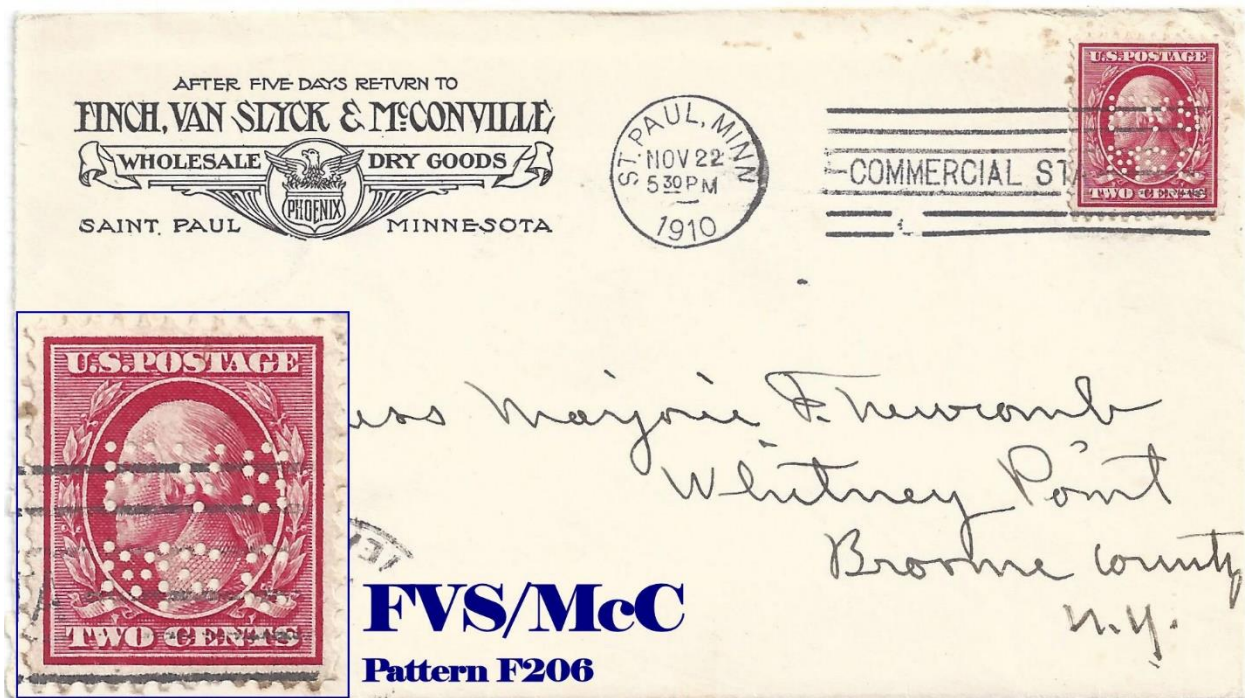 AFTER FIVE DAYS RETURN TO
FINCH, VAN SLYCK & McCONVILLE
WHOLESALE DRY GOODS
PHOENIX
SAINT PAUL MINNESOTA
ST. PAUL, MINN
NOV 22
5 30 PM
1910
COMMERCIAL STA
U.S. POSTAGE
TWO CENTS
U.S. POSTAGE
TWO CENTS
Marjorie F. Newcomb
Whitney Point
Broome County
N.Y.
FVS/McC
Pattern F206